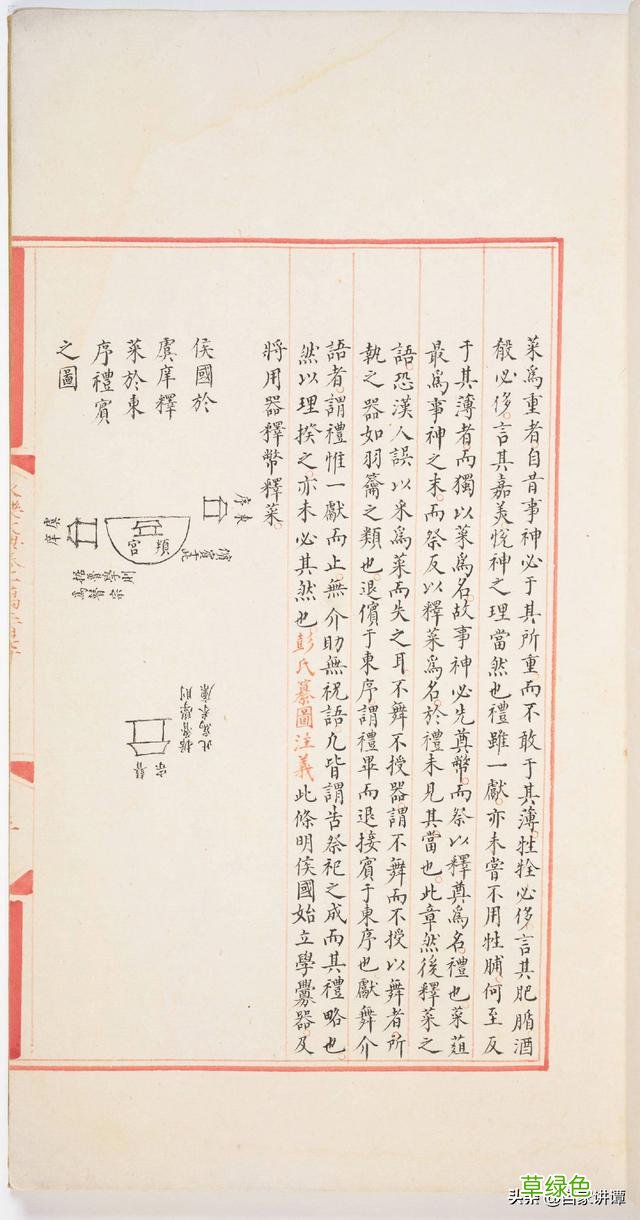 菜為重者自昔事神必于其所重而不敢于其薄牲牷必侈言其肥腯酒
殽必侈言其嘉美悅神之理當然也禮雖一獻亦未嘗不用牲脯何至反
于其薄者而獨以菜為名故事神必先奠幣而祭以釋奠為名禮也菜菹
最為事神之末而祭反以釋菜為名於禮未見其當也此章然後釋菜之
語恐漢人誤以采為菜而失之耳不舞不授器謂不舞而不授以舞者所
執之器如羽籥之類也退儐于東序謂禮畢而退接賓于東序也獻舞介
語者謂禮惟一獻而止無介助無祝語凡皆謂告祭祀之成而其禮略也
然以理揆之亦未必其然也彭氏纂圖注義此條明侯國始立學釁器及
將用器釋幣釋菜
侯國於
虞庠釋
菜於東
序禮賓
之圖
東序
頖宮
虞庠
草绿色
头条 @百家讲谭